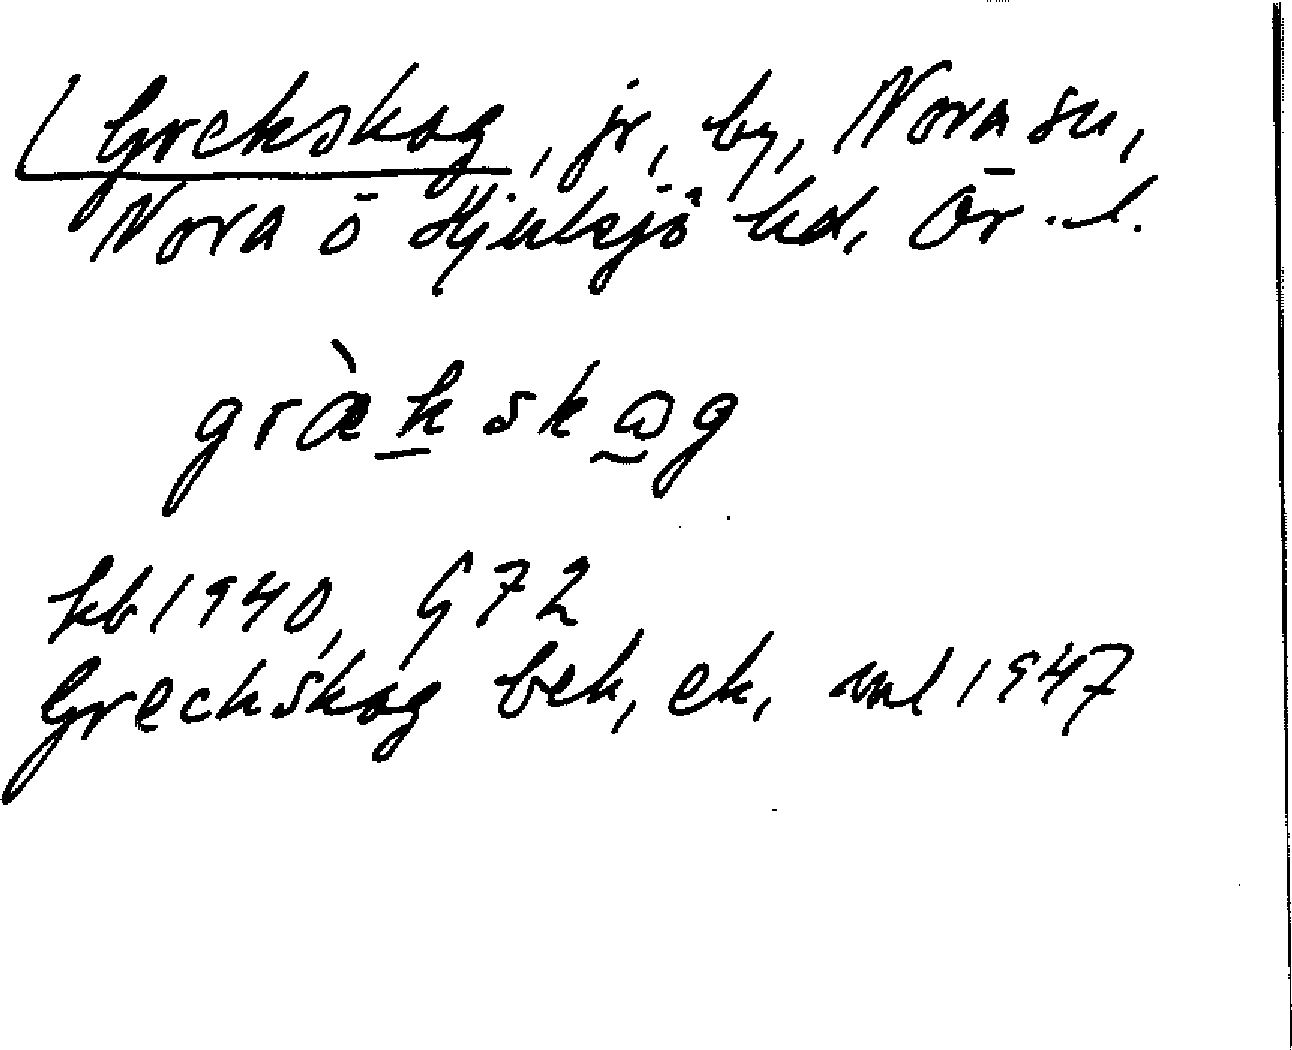 Grekskog, jr, by, Nora sn,
Nora o Hjulsjö hd, Ör. l.
græ̀kskωg
kb 1940, G 72
Greckskog bek, ek, vml 1947